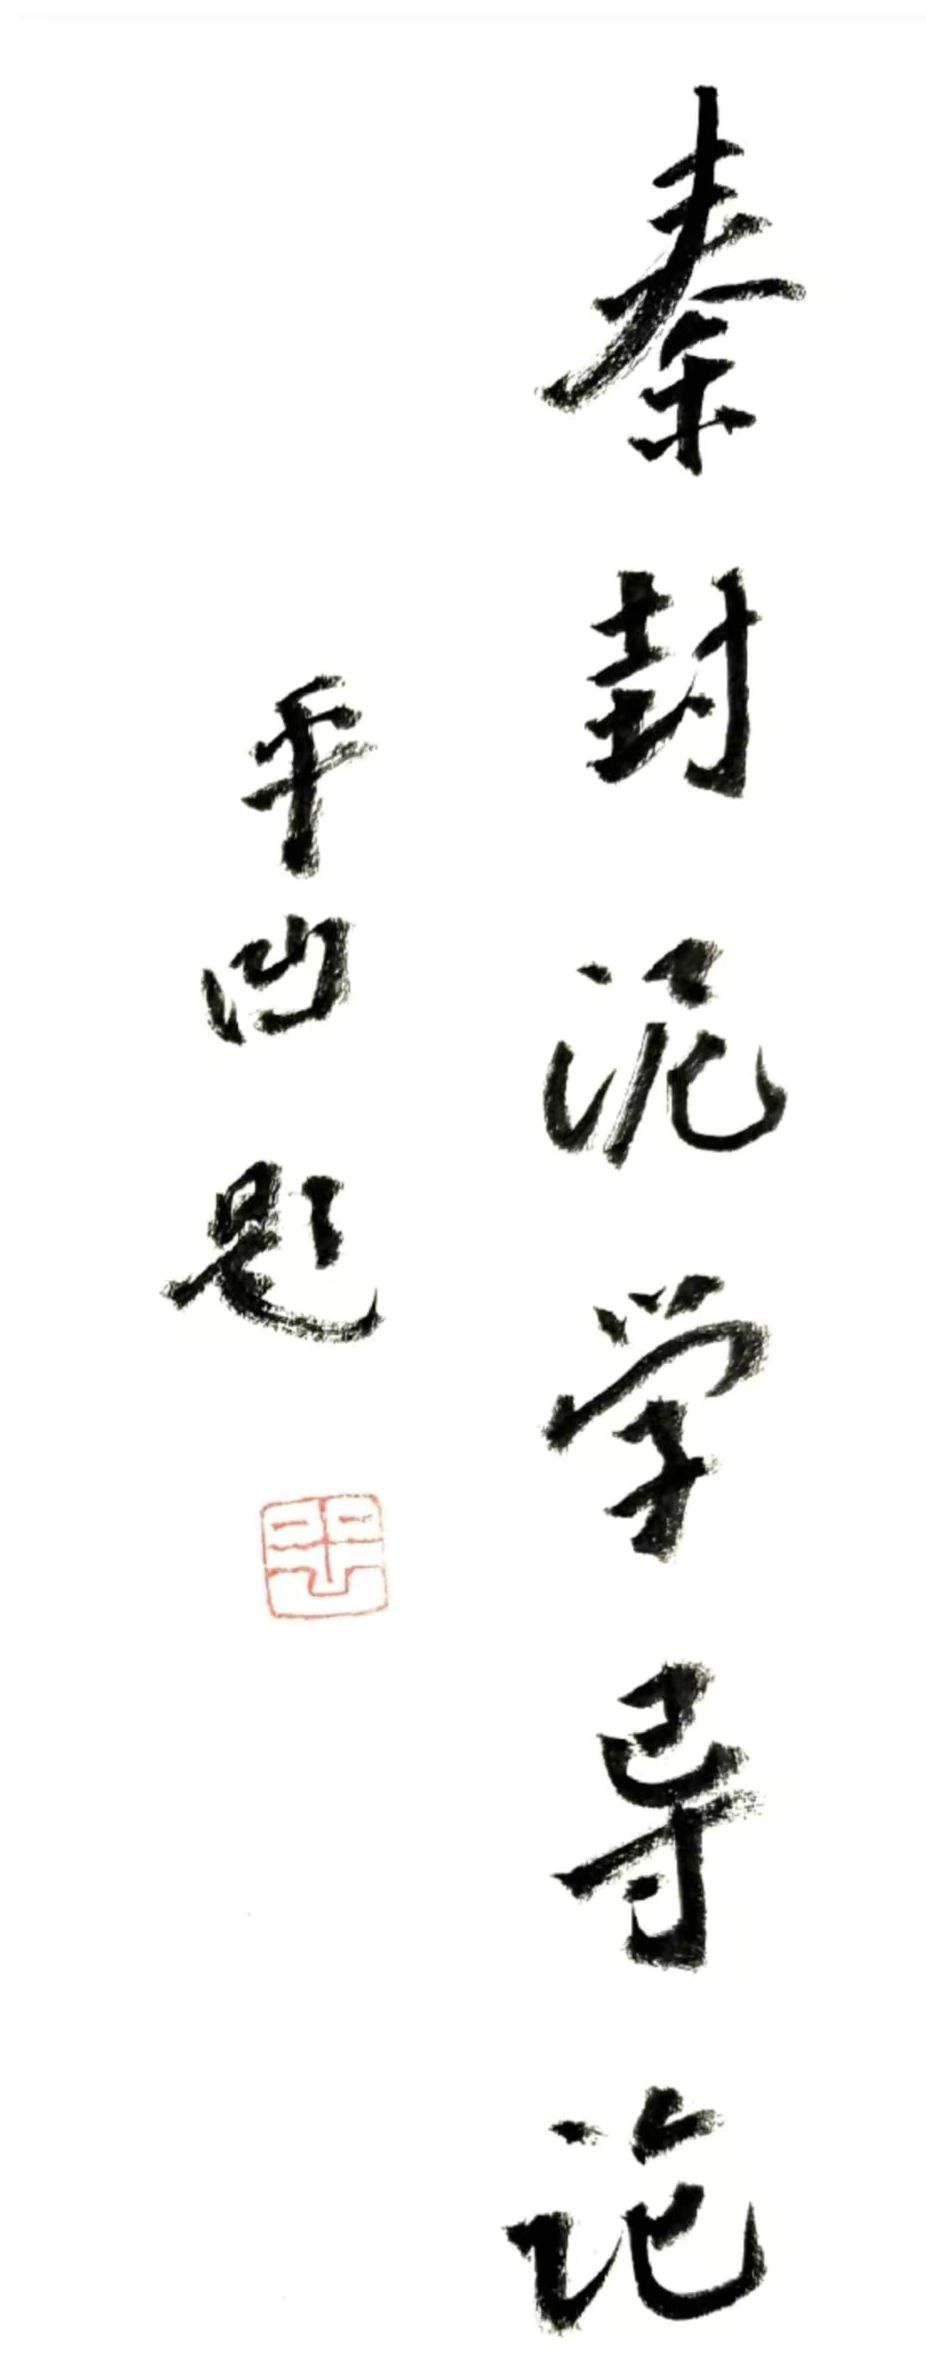 秦封泥学导论
平凹题